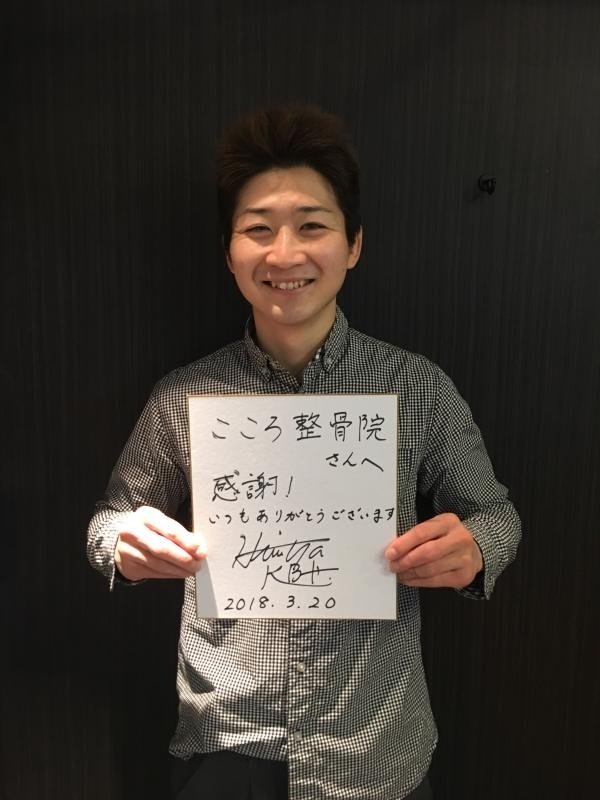 こころ整骨院
さんへ
感謝!
いつもありがとうございます
2018.3.20